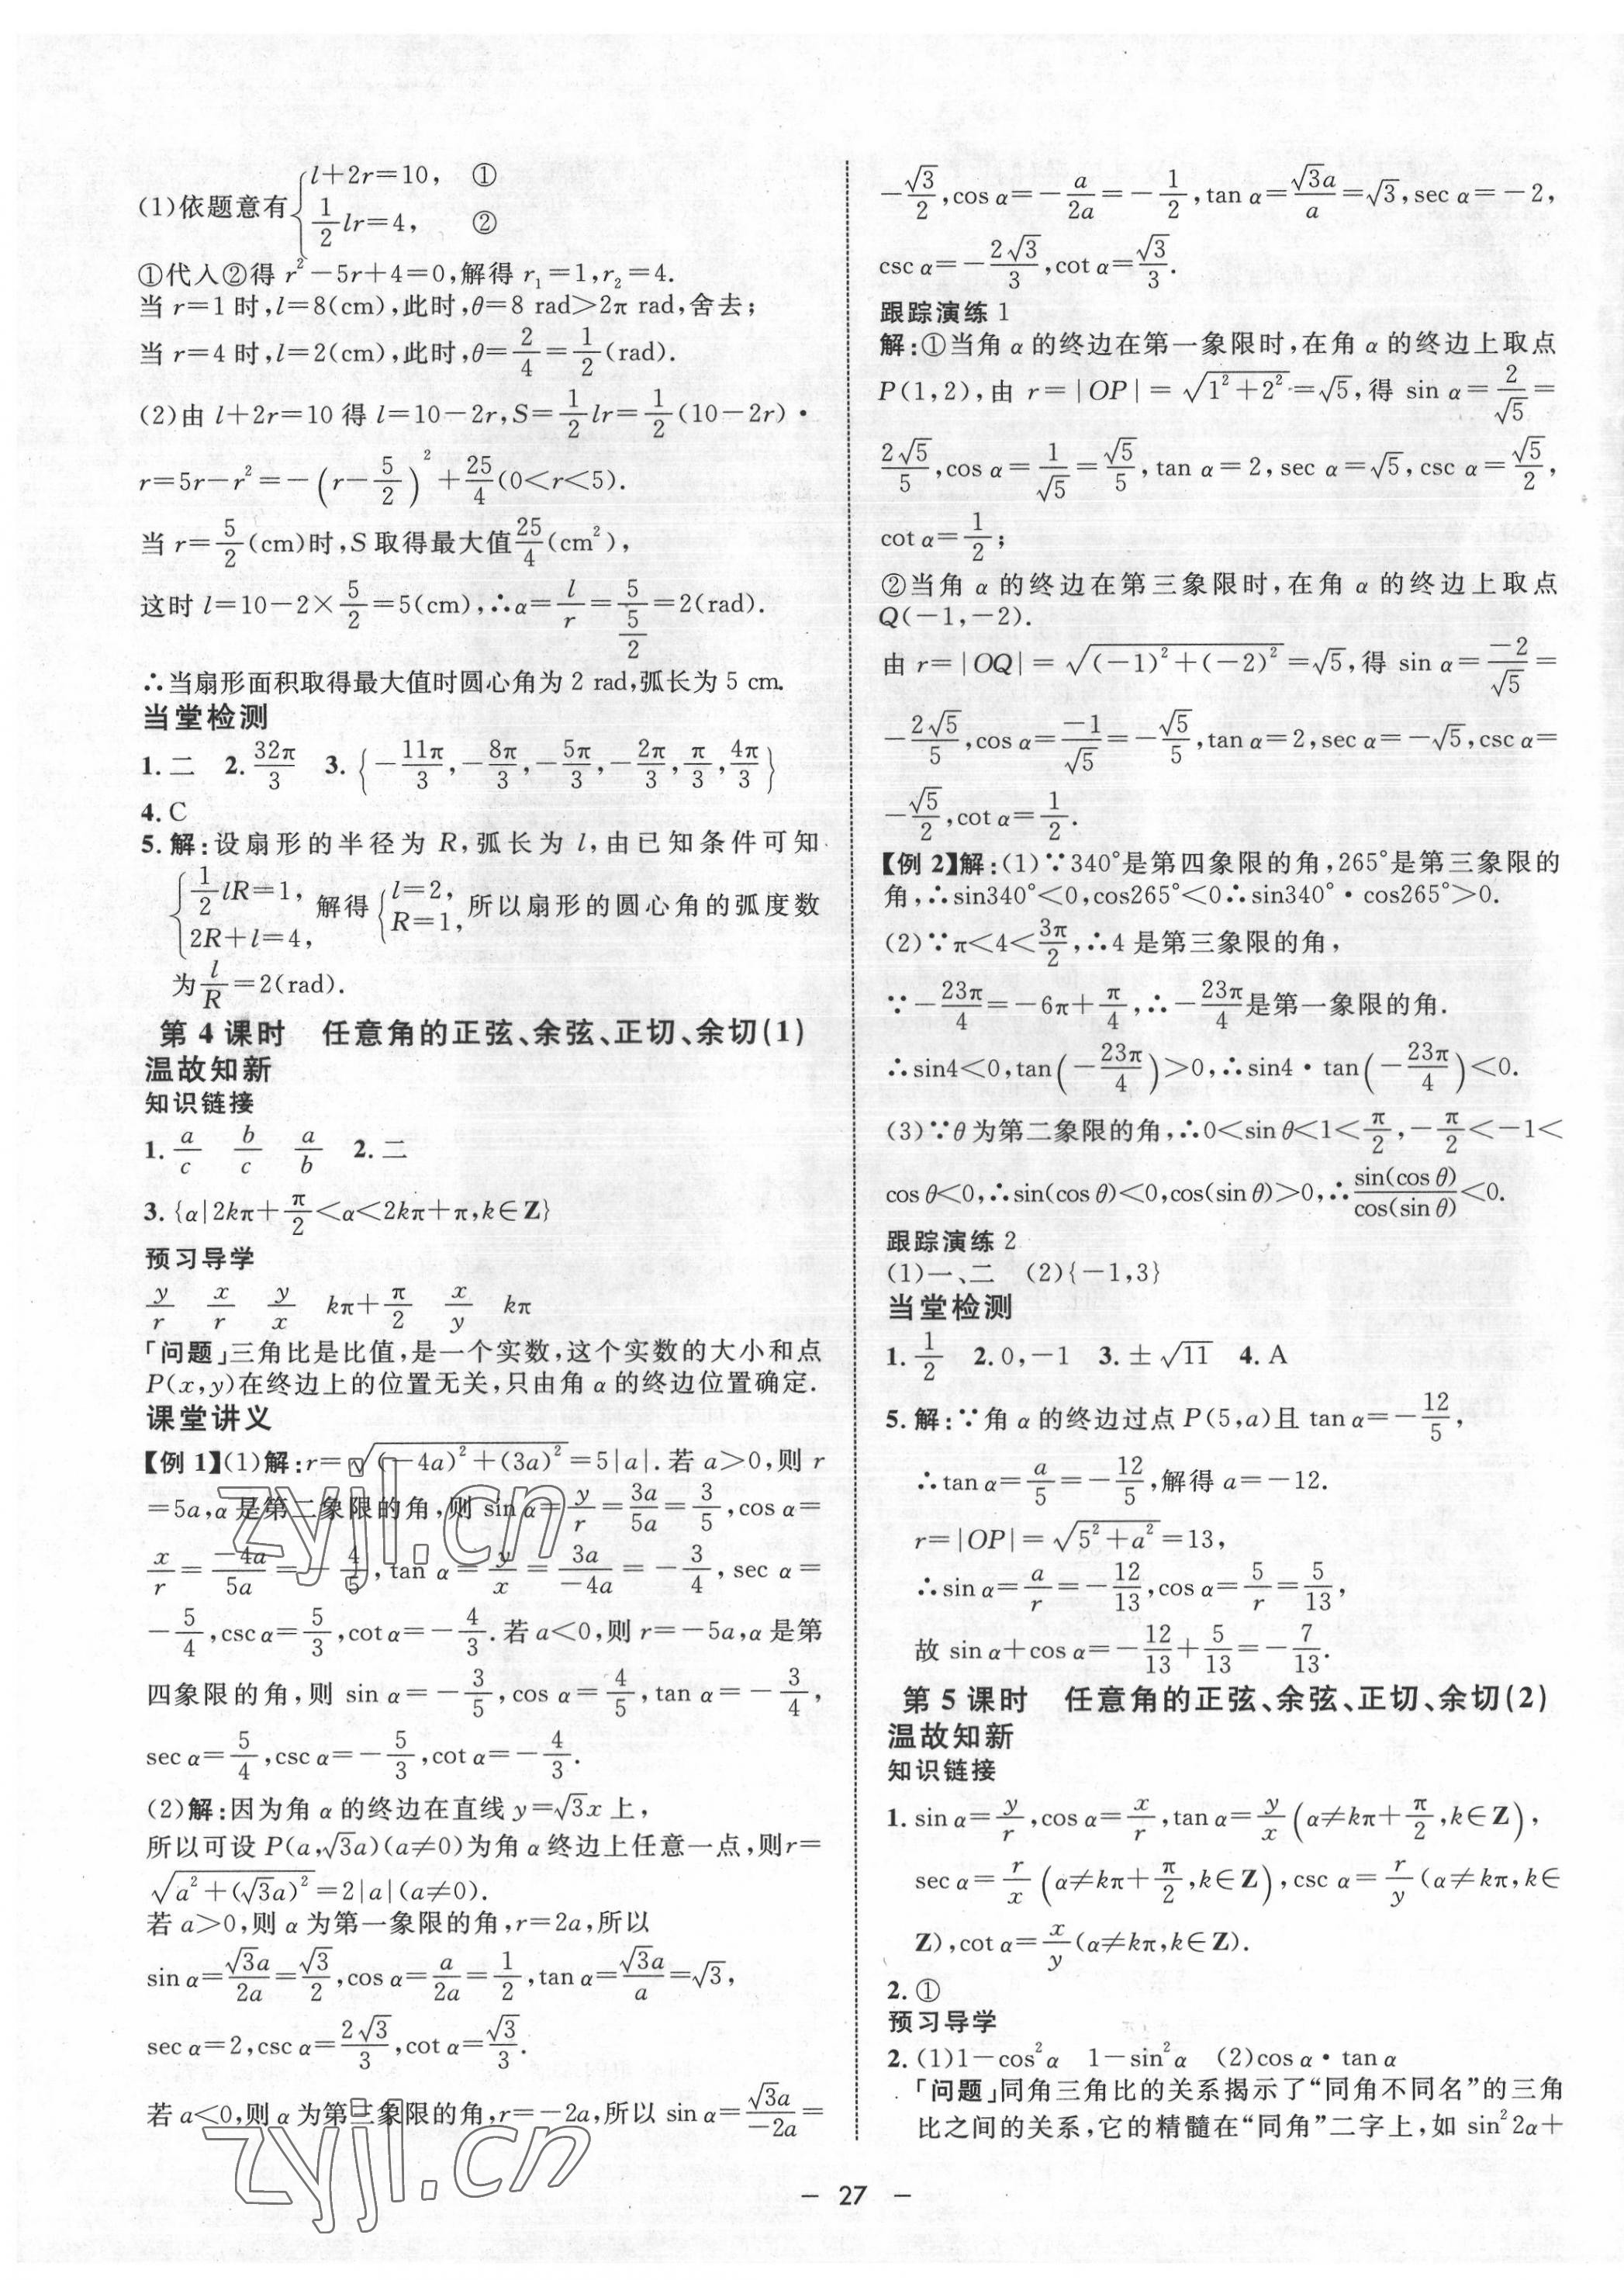 (1)依题意有{l+2r=10, ①
1/2 lr=4, ②
①代入②得 r²-5r+4=0,解得 r₁=1,r₂=4.
当 r=1 时,l=8(cm),此时,θ=8 rad>2π rad,舍去;
当 r=4 时,l=2(cm),此时,θ=2/4=1/2(rad).
(2)由 l+2r=10 得 l=10-2r,S=1/2 lr=1/2(10-2r)·
r=5r-r²=-(r-5/2)²+25/4(0<r<5).
当 r=5/2(cm)时,S 取得最大值25/4(cm²),
这时 l=10-2×5/2=5(cm),∴α=l/r=5/(5/2)=2(rad).
∴当扇形面积取得最大值时圆心角为 2 rad,弧长为 5 cm.
当堂检测
1. 二 2. 32π/3 3. {-11π/3,-8π/3,-5π/3,-2π/3,π/3,4π/3}
4. C
5. 解:设扇形的半径为 R,弧长为 l,由已知条件可知
{1/2 lR=1, 2R+l=4, 解得{l=2, R=1, 所以扇形的圆心角的弧度数
为 l/R=2(rad).
第 4 课时 任意角的正弦、余弦、正切、余切(1)
温故知新
知识链接
1. a/c b/c a/b 2. 二
3. {α|2kπ+π/2<α<2kπ+π,k∈Z}
预习导学
y/r x/r y/x kπ+π/2 x/y kπ
「问题」三角比是比值,是一个实数,这个实数的大小和点
P(x,y)在终边上的位置无关,只由角 α 的终边位置确定.
课堂讲义
【例 1】(1)解:r=√((-4a)²+(3a)²)=5|a|.若 a>0,则 r
=5a,α 是第二象限的角,则 sin α=y/r=3a/5a=3/5,cos α=
x/r=-4a/5a=-4/5,tan α=y/x=3a/-4a=-3/4,sec α=
-5/4,csc α=5/3,cot α=-4/3.若 a<0,则 r=-5a,α 是第
四象限的角,则 sin α=-3/5,cos α=4/5,tan α=-3/4,
sec α=5/4,csc α=-5/3,cot α=-4/3.
(2)解:因为角 α 的终边在直线 y=√3x 上,
所以可设 P(a,√3a)(a≠0)为角 α 终边上任意一点,则r=
√(a²+(√3a)²)=2|a|(a≠0).
若 a>0,则 α 为第一象限的角,r=2a,所以
sin α=√3a/2a=√3/2,cos α=a/2a=1/2,tan α=√3a/a=√3,
sec α=2,csc α=2√3/3,cot α=√3/3.
若 a<0,则 α 为第三象限的角,r=-2a,所以 sin α=√3a/-2a=
-√3/2,cos α=-a/2a=-1/2,tan α=√3a/a=√3,sec α=-2,
csc α=-2√3/3,cot α=√3/3.
跟踪演练 1
解:①当角 α 的终边在第一象限时,在角 α 的终边上取点
P(1,2),由 r=|OP|=√(1²+2²)=√5,得 sin α=2/√5=
2√5/5,cos α=1/√5=√5/5,tan α=2,sec α=√5,csc α=√5/2,
cot α=1/2;
②当角 α 的终边在第三象限时,在角 α 的终边上取点
Q(-1,-2).
由 r=|OQ|=√((-1)²+(-2)²)=√5,得 sin α=-2/√5=
-2√5/5,cos α=-1/√5=-√5/5,tan α=2,sec α=-√5,csc α=
-√5/2,cot α=1/2.
【例 2】解:(1)∵340°是第四象限的角,265°是第三象限的
角,∴sin340°<0,cos265°<0∴sin340°·cos265°>0.
(2)∵π<4<3π/2,∴4 是第三象限的角,
∵-23π/4=-6π+π/4,∴-23π/4是第一象限的角.
∴sin4<0,tan(-23π/4)>0,∴sin4·tan(-23π/4)<0.
(3)∵θ 为第二象限的角,∴0<sin θ<1<π/2,-π/2<-1<
cos θ<0,∴sin(cos θ)<0,cos(sin θ)>0,∴sin(cos θ)/cos(sin θ)<0.
跟踪演练 2
(1)一、二 (2){-1,3}
当堂检测
1. 1/2 2. 0,-1 3. ±√11 4. A
5. 解:∵角 α 的终边过点 P(5,a)且 tan α=-12/5,
∴tan α=a/5=-12/5,解得 a=-12.
r=|OP|=√(5²+a²)=13,
∴sin α=a/r=-12/13,cos α=5/r=5/13,
故 sin α+cos α=-12/13+5/13=-7/13.
第 5 课时 任意角的正弦、余弦、正切、余切(2)
温故知新
知识链接
1. sin α=y/r,cos α=x/r,tan α=y/x(α≠kπ+π/2,k∈Z),
sec α=r/x(α≠kπ+π/2,k∈Z),csc α=r/y(α≠kπ,k∈
Z),cot α=x/y(α≠kπ,k∈Z).
2. ①
预习导学
2. (1)1-cos²α 1-sin²α (2)cos α·tan α
「问题」同角三角比的关系揭示了“同角不同名”的三角
比之间的关系,它的精髓在“同角”二字上,如 sin²2α+
- 27 -
zyjl.cn
zyjl.cn